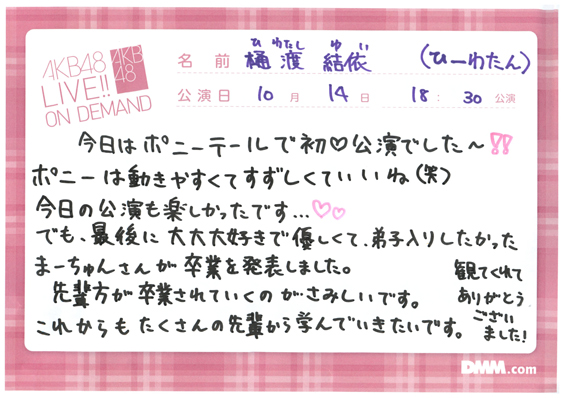 AKB48
LIVE!!
ON DEMAND
AKB
48
ひわたし ゆい
名前 樋渡 結依 (ひーわたん)
公演日 10月 14日 18:30公演
今日はポニーテールで初♡公演でした〜!!
ポニーは動きやすくてすずしくていいね(笑)
今日の公演も楽しかったです...♡♡
でも、最後に大大大好きで優しくて、弟子入りしたかった
まーちゅんさんが卒業を発表しました。
先輩方が卒業されていくのがさみしいです。
これからもたくさんの先輩から学んでいきたいです。
観てくれて
ありがとう
ござい
ました!
DMM.com